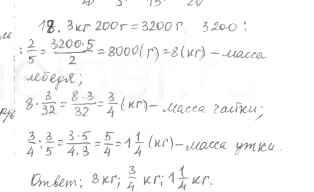 18. 3кг 200г = 3200г. 3200 :
: 2/5 = 3200·5/2 = 8000(г) = 8(кг) – масса
лебедя;
8 · 3/32 = 8·3/32 = 3/4 (кг) – масса чайки;
3/4 : 3/5 = 3·5/4·3 = 5/4 = 1 1/4 (кг) – масса утки.
Ответ: 8кг; 3/4 кг; 1 1/4 кг.